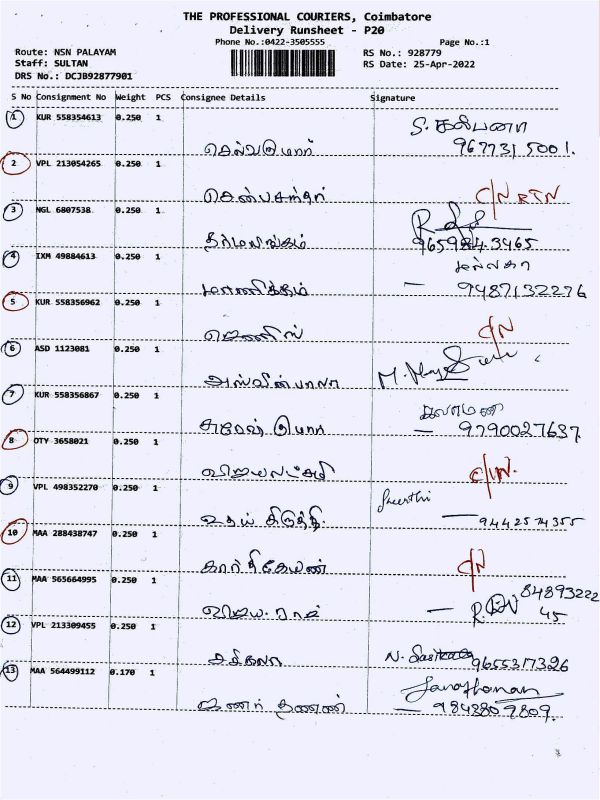 THE PROFESSIONAL COURIERS, Coimbatore
Delivery Runsheet - P20
Phone No.:0422-3505555 Page No.:1
Route: NSN PALAYAM RS No.: 928779
Staff: SULTAN RS Date: 25-Apr-2022
DRS No.: DCJB92877901
S No Consignment No Weight PCS Consignee Details Signature
1 KUR 558354613 0.250 1 S. கல்பனா
செல்வகுமார் 9677315001.
2 VPL 213054265 0.250 1
C/N RTN
3 NGL 6807538 0.250 1
தர்மலிங்கம் 9659843465
4 IXM 49884613 0.250 1 மல்லிகா
மாணிக்கம் — 9487132276
5 KUR 558356962 0.250 1 C/N
ஜெனிஸ்
6 ASD 1123081 0.250 1
அஸ்வின்பாலா
7 KUR 558356867 0.250 1
சுரேஷ் குமார் — 9790027637
8 OTY 3658021 0.250 1
விஜயலட்சுமி C/N.
9 VPL 498352270 0.250 1
உதய் கிருத்தி. — 9442574355
10 MAA 288438747 0.250 1
கார்த்திகேயன் C/N
11 MAA 565664995 0.250 1 84893222
விஜய ராஜ் — 45
12 VPL 213309455 0.250 1
சசிகலா N. Sasikala 9655317326
13 MAA 564499112 0.170 1 Janarthanan
ஜனார்தனன் — 9848809809.